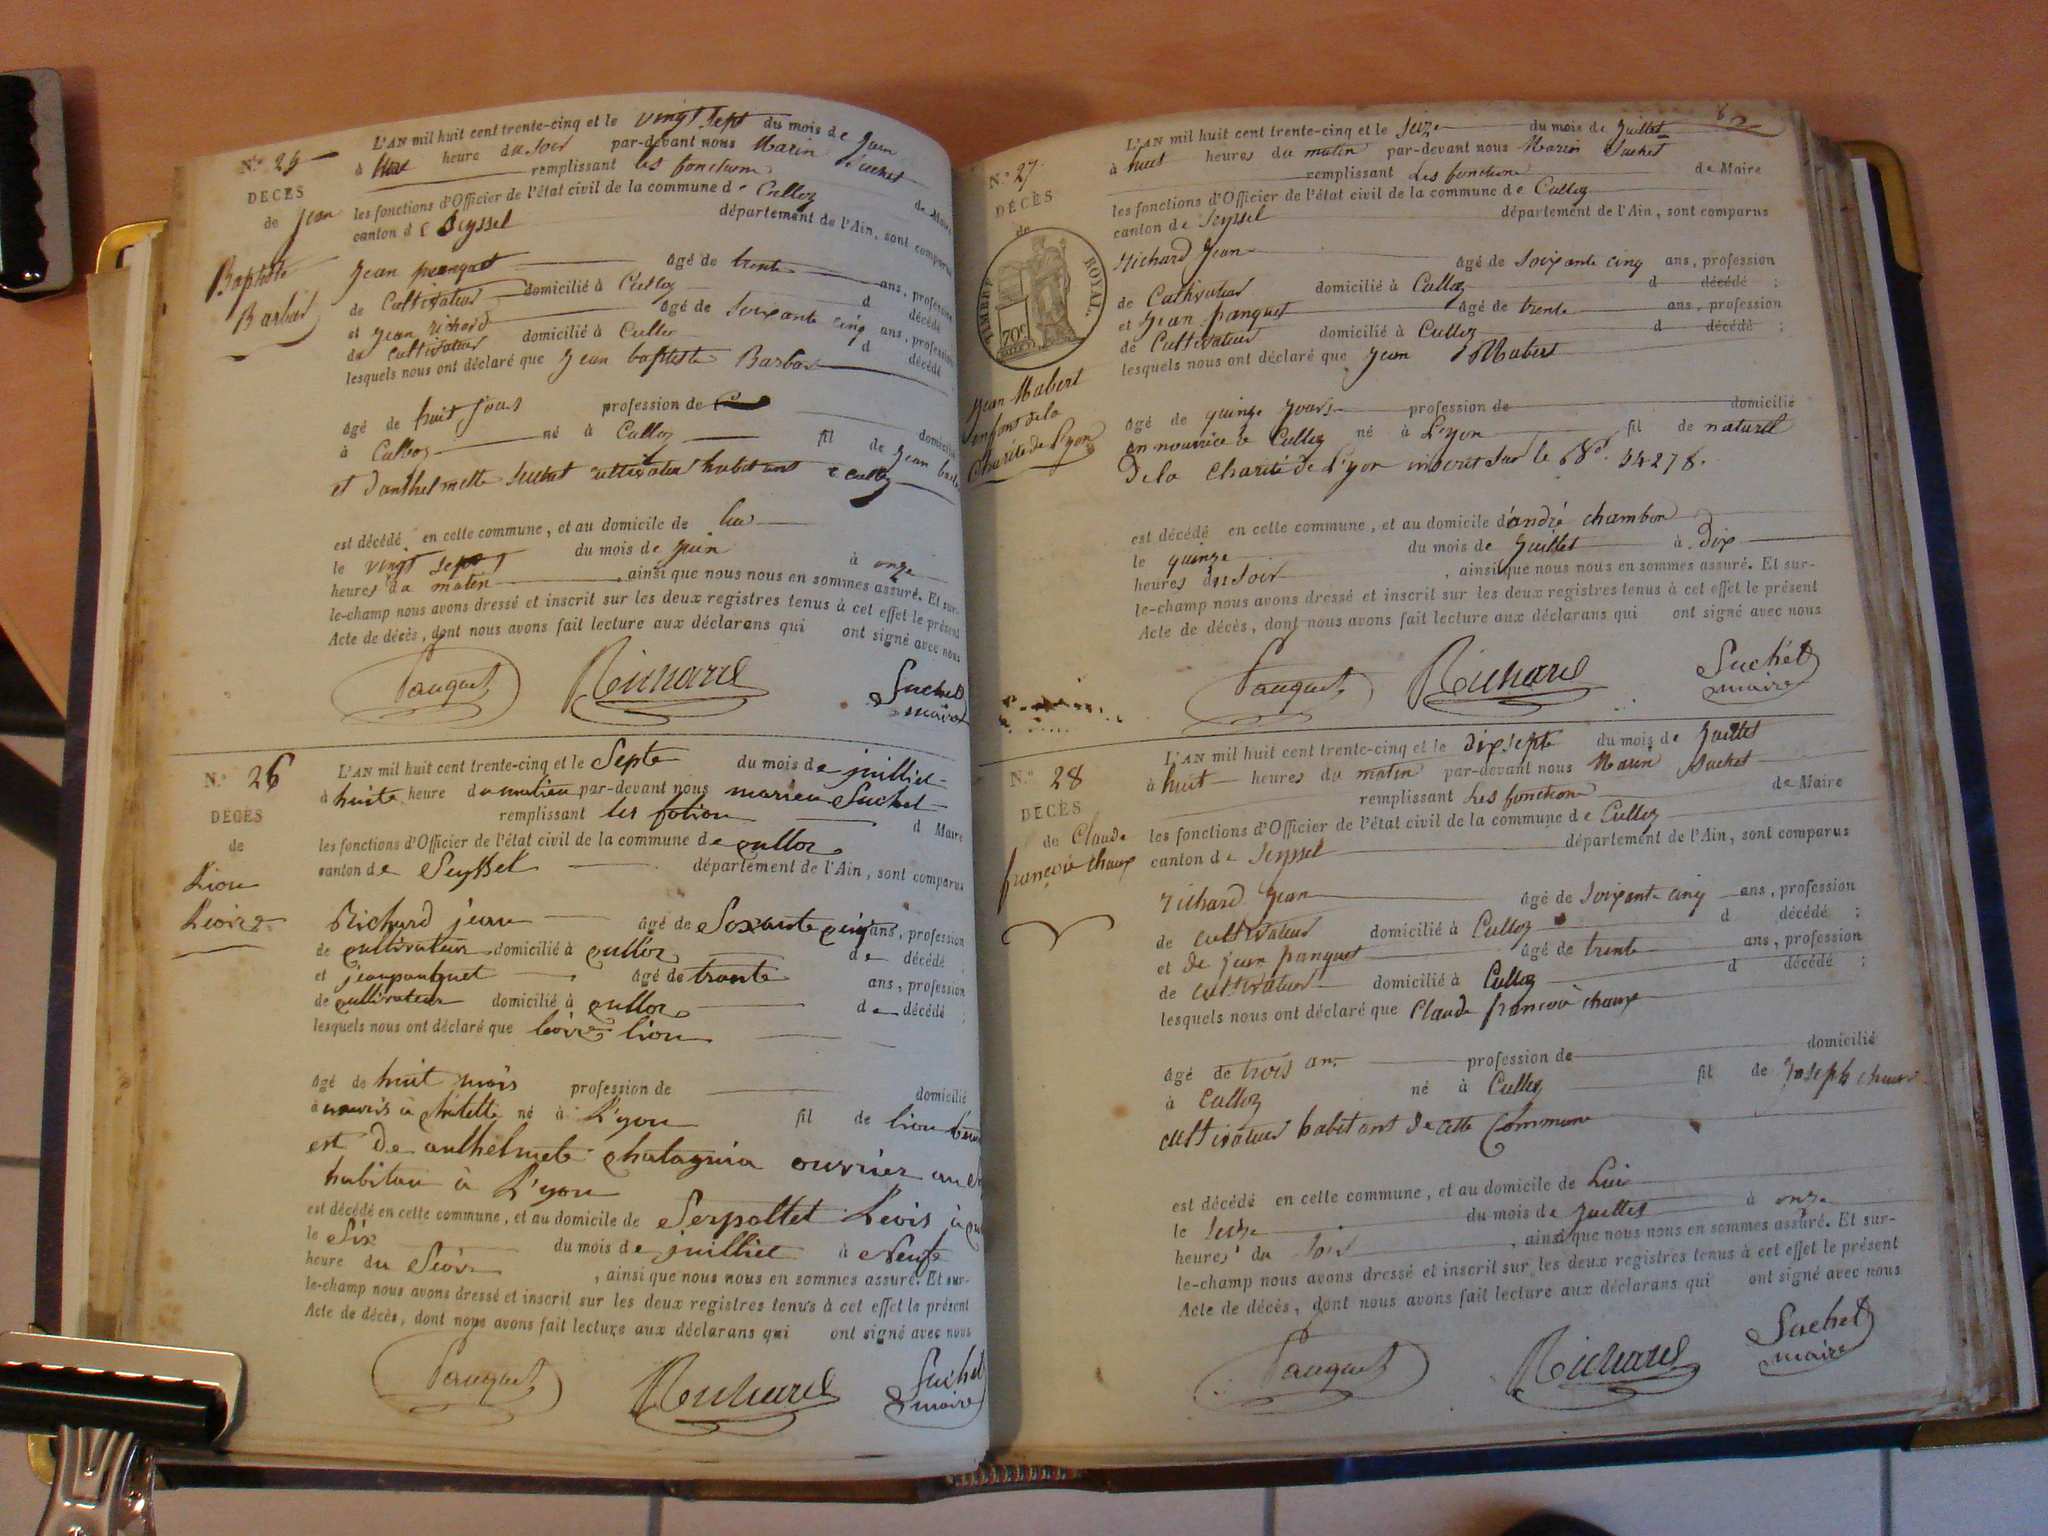 N.° 25
DÉCÈS
de Jean
Baptiste
Barbar
L'AN mil huit cent trente-cinq et le vingt sept du mois de Juin
à heure du soir par-devant nous Marin Suchet
remplissant les fonctions de Maire
les fonctions d'Officier de l'état civil de la commune de Culloz
canton de Seyssel département de l'Ain, sont comparus
Jean panquet âgé de trente ans, profession
de Cultivateur domicilié à Culloz d décédé
et Jean richard âgé de soixante cinq ans, profession
de cultivateur domicilié à Culloz d décédé
lesquels nous ont déclaré que Jean baptiste Barbar
âgé de huit jours profession de domicilié
à Culloz né à Culloz fil de Jean
et d'anthelmette suchet cultivateur habitant a culloz
est décédé en cette commune, et au domicile de lui
le vingt sept du mois de juin à onze
heures du matin, ainsi que nous nous en sommes assuré. Et sur-
le-champ nous avons dressé et inscrit sur les deux registres tenus à cet effet le présent
Acte de décès, dont nous avons fait lecture aux déclarans qui ont signé avec nous
Pauquet Richard Suchet
maire
N.° 26
DÉCÈS
de
Lion
Leoire
L'AN mil huit cent trente-cinq et le Septe du mois de juilliet
à huite heure du matieu par-devant nous marieu Suchet
remplissant les fotion d Maire
les fonctions d'Officier de l'état civil de la commune de qulloz
canton de Seyssel département de l'Ain, sont comparus
Richard jean âgé de Soxante qinq ans, profession
de qultivateur domicilié à qulloz de décédé ;
et jeanpauquet âgé de trante ans, profession
de qultivateur domicilié à qulloz de décédé ;
lesquels nous ont déclaré que lion
âgé de huit mois profession de domicilié
à né à L'yon fil de lion
est De anthelmete chatagnia ouvrier
habitan à L'yon
est décédé en cette commune, et au domicile de Serpollet Levis à
le Six du mois de juilliet à Neufe
heure du Seoir, ainsi que nous nous en sommes assuré. Et sur-
le-champ nous avons dressé et inscrit sur les deux registres tenus à cet effet le présent
Acte de décès, dont nous avons fait lecture aux déclarans qui ont signé avec nous
Pauquet Richard Suchet
maire
N.° 27
DÉCÈS
de
TIMBRE ROYAL.
70c
Jean Mabert
enfant de la
Charité de Lyon
L'AN mil huit cent trente-cinq et le seize du mois de Juillet
à huit heures du matin par-devant nous Marin Suchet
remplissant Les fonctions de Maire
les fonctions d'Officier de l'état civil de la commune de Culloz
canton de Seyssel département de l'Ain, sont comparus
Richard Jean âgé de soixante cinq ans, profession
de Cultivateur domicilié à Culloz d décédé ;
et Jean panquet âgé de trente ans, profession
de Cultivateur domicilié à Culloz d décédé ;
lesquels nous ont déclaré que Jean Mabert
âgé de quinze jours profession de domicilié
en nourrice à Culloz né à L'yon fil de naturel
de la Charité de L'yon inscrit sur le 34278.
est décédé en cette commune, et au domicile d'andré chambon
le quinze du mois de Juillet à dix
heures du soir, ainsi que nous nous en sommes assuré. Et sur-
le-champ nous avons dressé et inscrit sur les deux registres tenus à cet effet le présent
Acte de décès, dont nous avons fait lecture aux déclarans qui ont signé avec nous
Pauquet Richard Suchet
maire
N.° 28
DÉCÈS
de Claude
françois chaux
L'AN mil huit cent trente-cinq et le dix septe du mois de Juillet
à huit heures du matin par-devant nous Marin Suchet
remplissant Les fonctions de Maire
les fonctions d'Officier de l'état civil de la commune de Culloz
canton de Seyssel département de l'Ain, sont comparus
richard Jean âgé de soixante cinq ans, profession
de cultivateur domicilié à Culloz d décédé ;
et de jean panquet âgé de trente ans, profession
de cultivateur domicilié à Culloz d décédé ;
lesquels nous ont déclaré que Claude françois chaux
âgé de trois an profession de domicilié
à Culloz né à Culloz fil de Joseph chaux
cultivateur habitant de cette Commune
est décédé en cette commune, et au domicile de Lui
le seize du mois de juillet à onze
heures du soir, ainsi que nous nous en sommes assuré. Et sur-
le-champ nous avons dressé et inscrit sur les deux registres tenus à cet effet le présent
Acte de décès, dont nous avons fait lecture aux déclarans qui ont signé avec nous
Pauquet Richard Suchet
maire